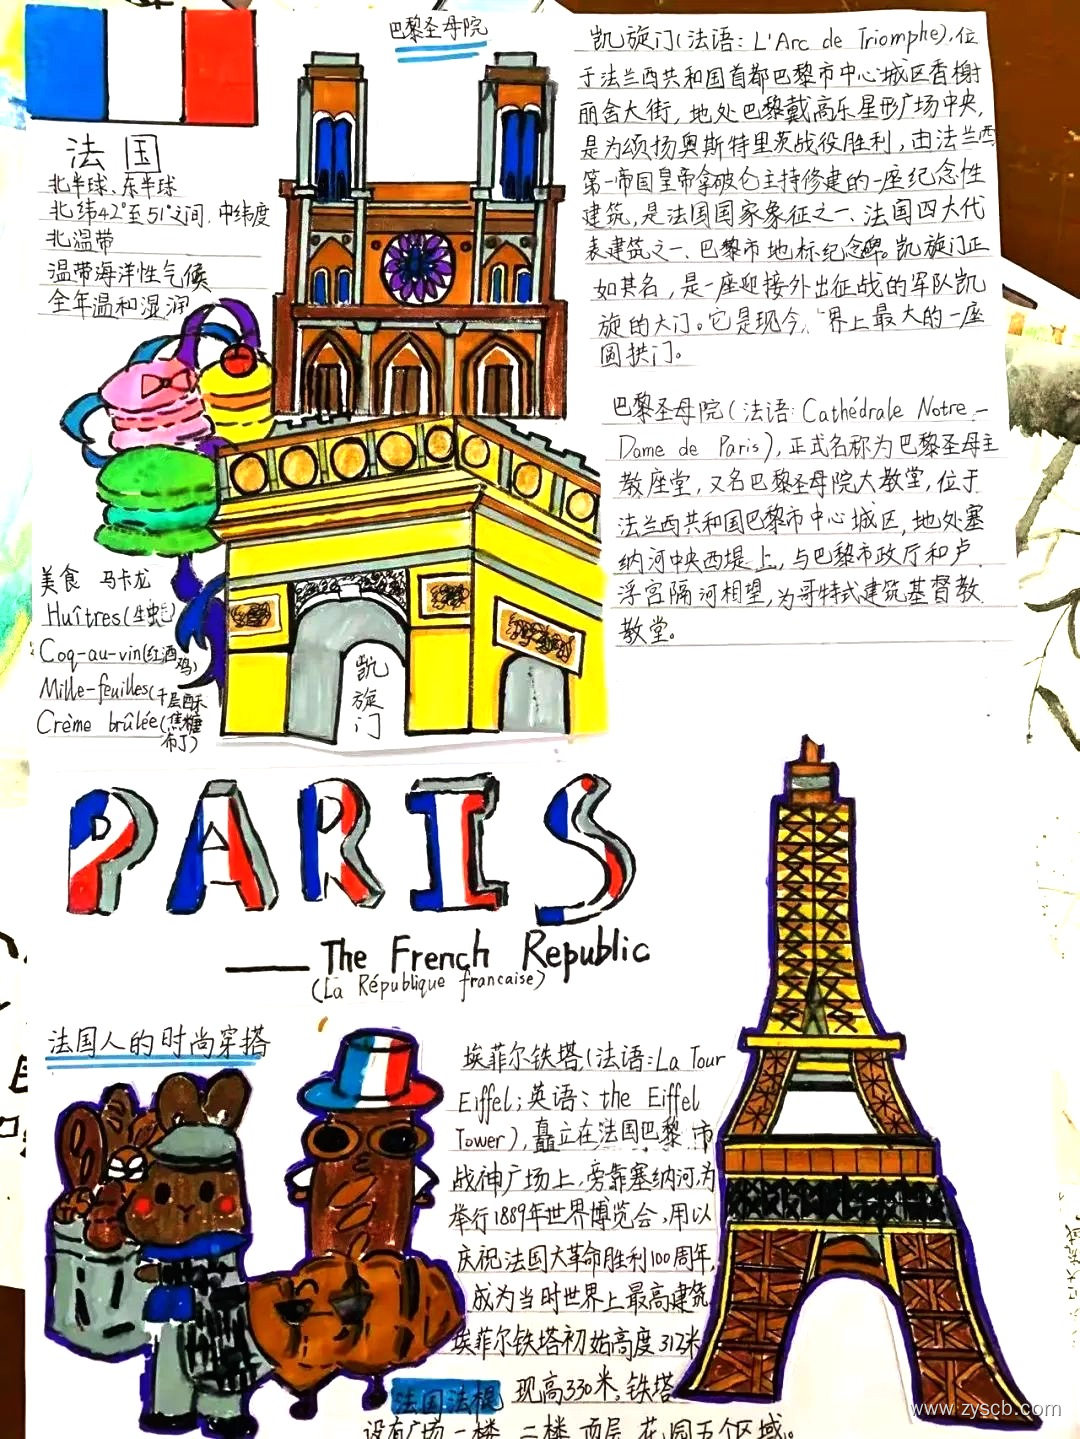 巴黎圣母院
法国
北半球、东半球
北纬42°至51°之间,中纬度
北温带
温带海洋性气候
全年温和湿润
凯旋门(法语:L'Arc de Triomphe),位
于法兰西共和国首都巴黎市中心城区香榭
丽舍大街,地处巴黎戴高乐星形广场中央,
是为颂扬奥斯特里茨战役胜利,由法兰西
第一帝国皇帝拿破仑主持修建的一座纪念性
建筑,是法国国家象征之一、法国四大代
表建筑之一、巴黎市地标纪念碑。凯旋门正
如其名,是一座迎接外出征战的军队凯
旋的大门。它是现今世界上最大的一座
圆拱门。
巴黎圣母院(法语:Cathédrale Notre-
Dame de Paris),正式名称为巴黎圣母主
教座堂,又名巴黎圣母院大教堂,位于
法兰西共和国巴黎市中心城区,地处塞
纳河中央西堤上,与巴黎市政厅和卢
浮宫隔河相望,为哥特式建筑基督教
教堂。
美食 马卡龙
Huîtres(生蚝)
Coq-au-vin(红酒鸡)
Mille-feuilles(千层酥)
Crème brûlée(焦糖布丁)
凯旋门
PARIS
——The French Republic
(La République francaise)
法国人的时尚穿搭
埃菲尔铁塔(法语:La Tour
Eiffel;英语:the Eiffel
Tower),矗立在法国巴黎市
战神广场上,旁靠塞纳河,为
举行1889年世界博览会,用以
庆祝法国大革命胜利100周年,
成为当时世界上最高建筑,
埃菲尔铁塔初始高度312米
现高330米,铁塔
设有广场一楼 二楼 顶层 花园五个区域。
法国法棍
www.zyscb.com